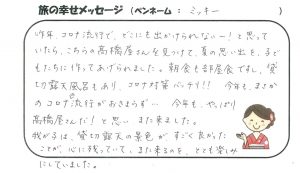 旅の幸せメッセージ （ペンネーム： ミッキー ）
昨年、コロナ流行で、どこにも出かけられない！と思って
いたら、こちらの高橋屋さんを見つけて、夏の思い出も、子ど
もたちに作ってあげられました。朝食も部屋食ですし、貸
切露天風呂もあり、コロナ対策バッチリ！！ 今年も、まさか
のコロナ流行がおさまらず… 今年も、やっぱり
高橋屋さんだ！と思い また来ました。
我が子は、貸切露天の景色が すごく良かった
ことが、心に残っていて、また来るのを、とても楽しみ
にしていました。